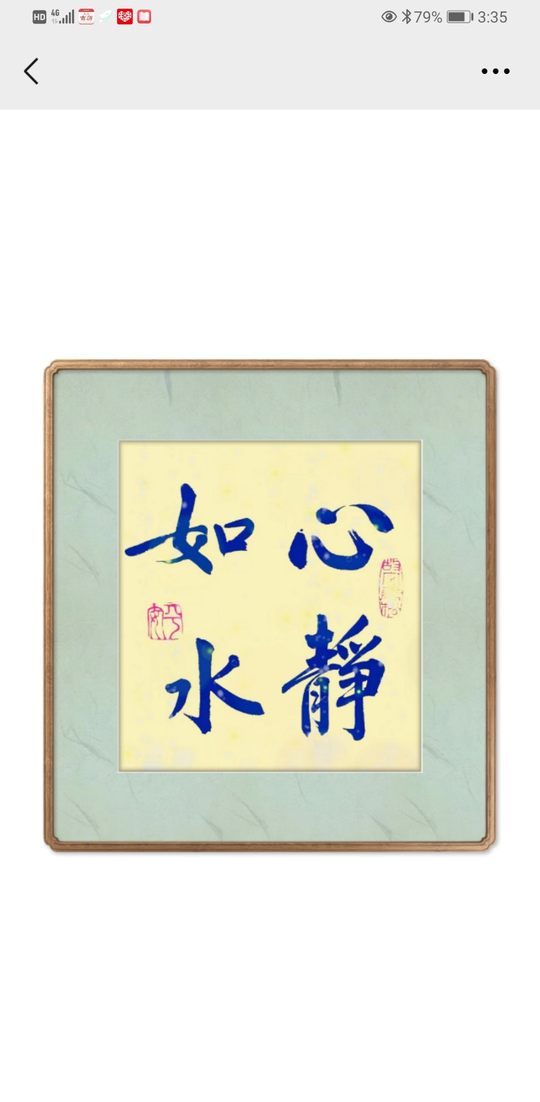 HD 4G 79% 3:35
心靜
如水
平安